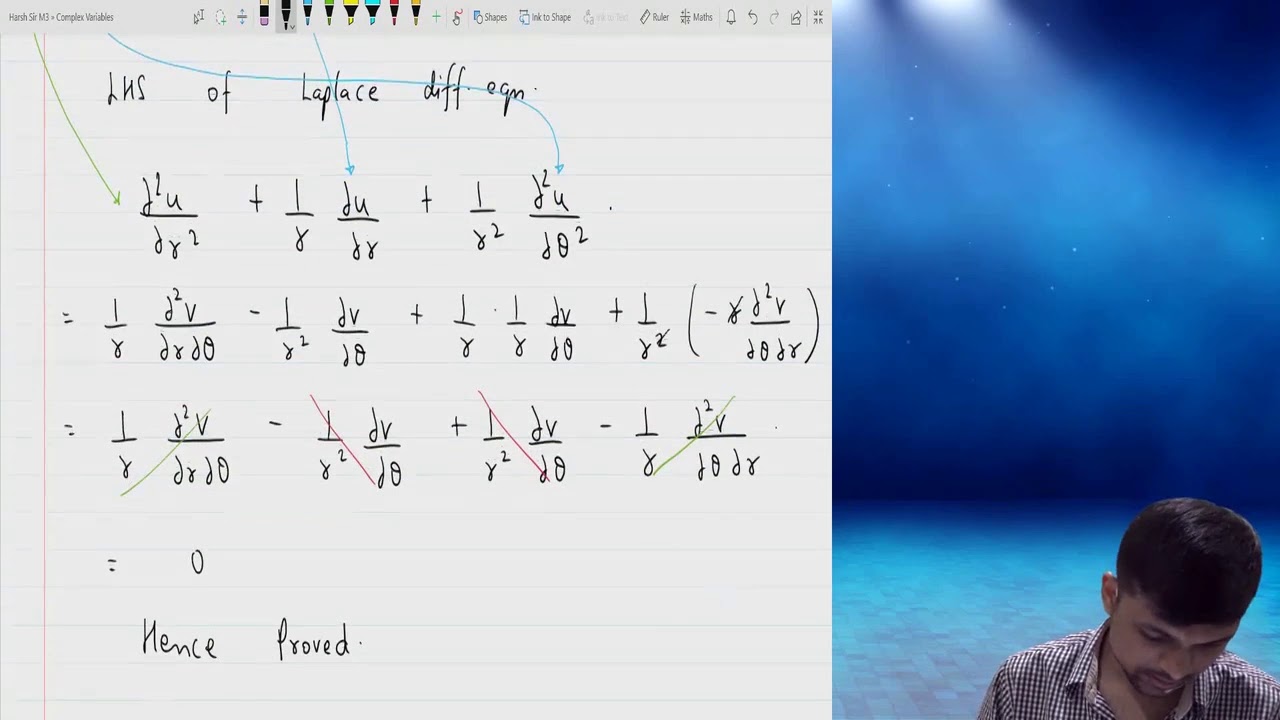 Harsh Sir M3 » Complex Variables
Shapes Ink to Shape Ink to Text Ruler Maths
LHS of Laplace diff. eqn.
∂²u/∂r² + 1/r ∂u/∂r + 1/r² ∂²u/∂θ² .
= 1/r ∂²v/∂r∂θ - 1/r² ∂v/∂θ + 1/r · 1/r ∂v/∂θ + 1/r² (-r ∂²v/∂θ∂r)
= 1/r ∂²v/∂r∂θ - 1/r² ∂v/∂θ + 1/r² ∂v/∂θ - 1/r ∂²v/∂θ∂r .
= 0
Hence Proved.